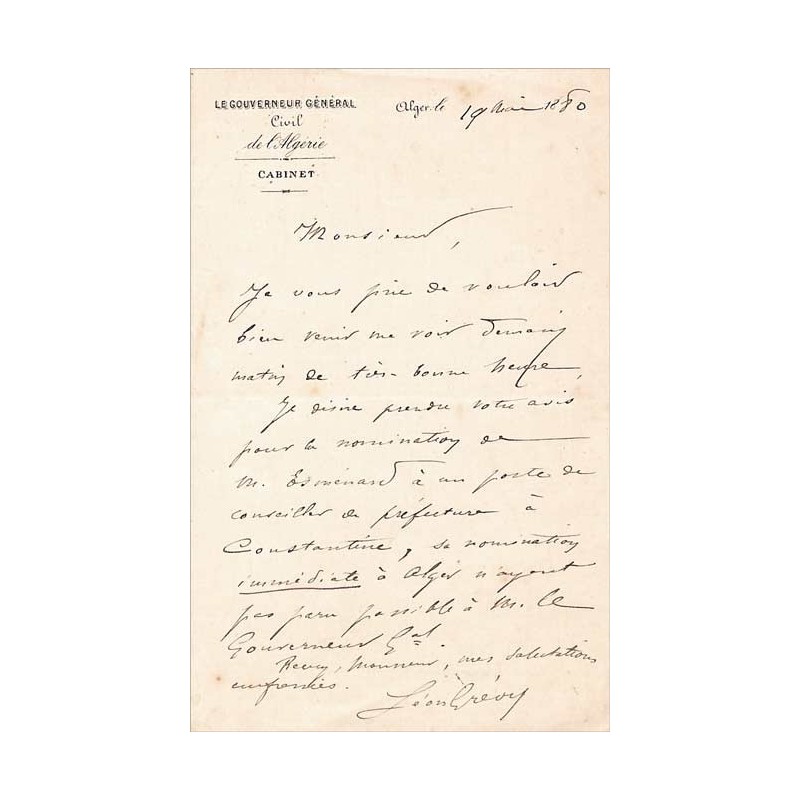 LE GOUVERNEUR GÉNÉRAL
Civil
de l'Algérie
CABINET
Alger, le 19 Mai 1880
Monsieur,
Je vous prie de vouloir
bien venir me voir demain
matin de très-bonne heure,
Je désire prendre votre avis
pour la nomination de
M. Esménard à un poste de
conseiller de préfecture à
Constantine, sa nomination
immédiate à Alger n'ayant
pas paru possible à M. le
Gouverneur Gal.
Recevez, Monsieur, mes salutations
empressées.
Léon Grévy